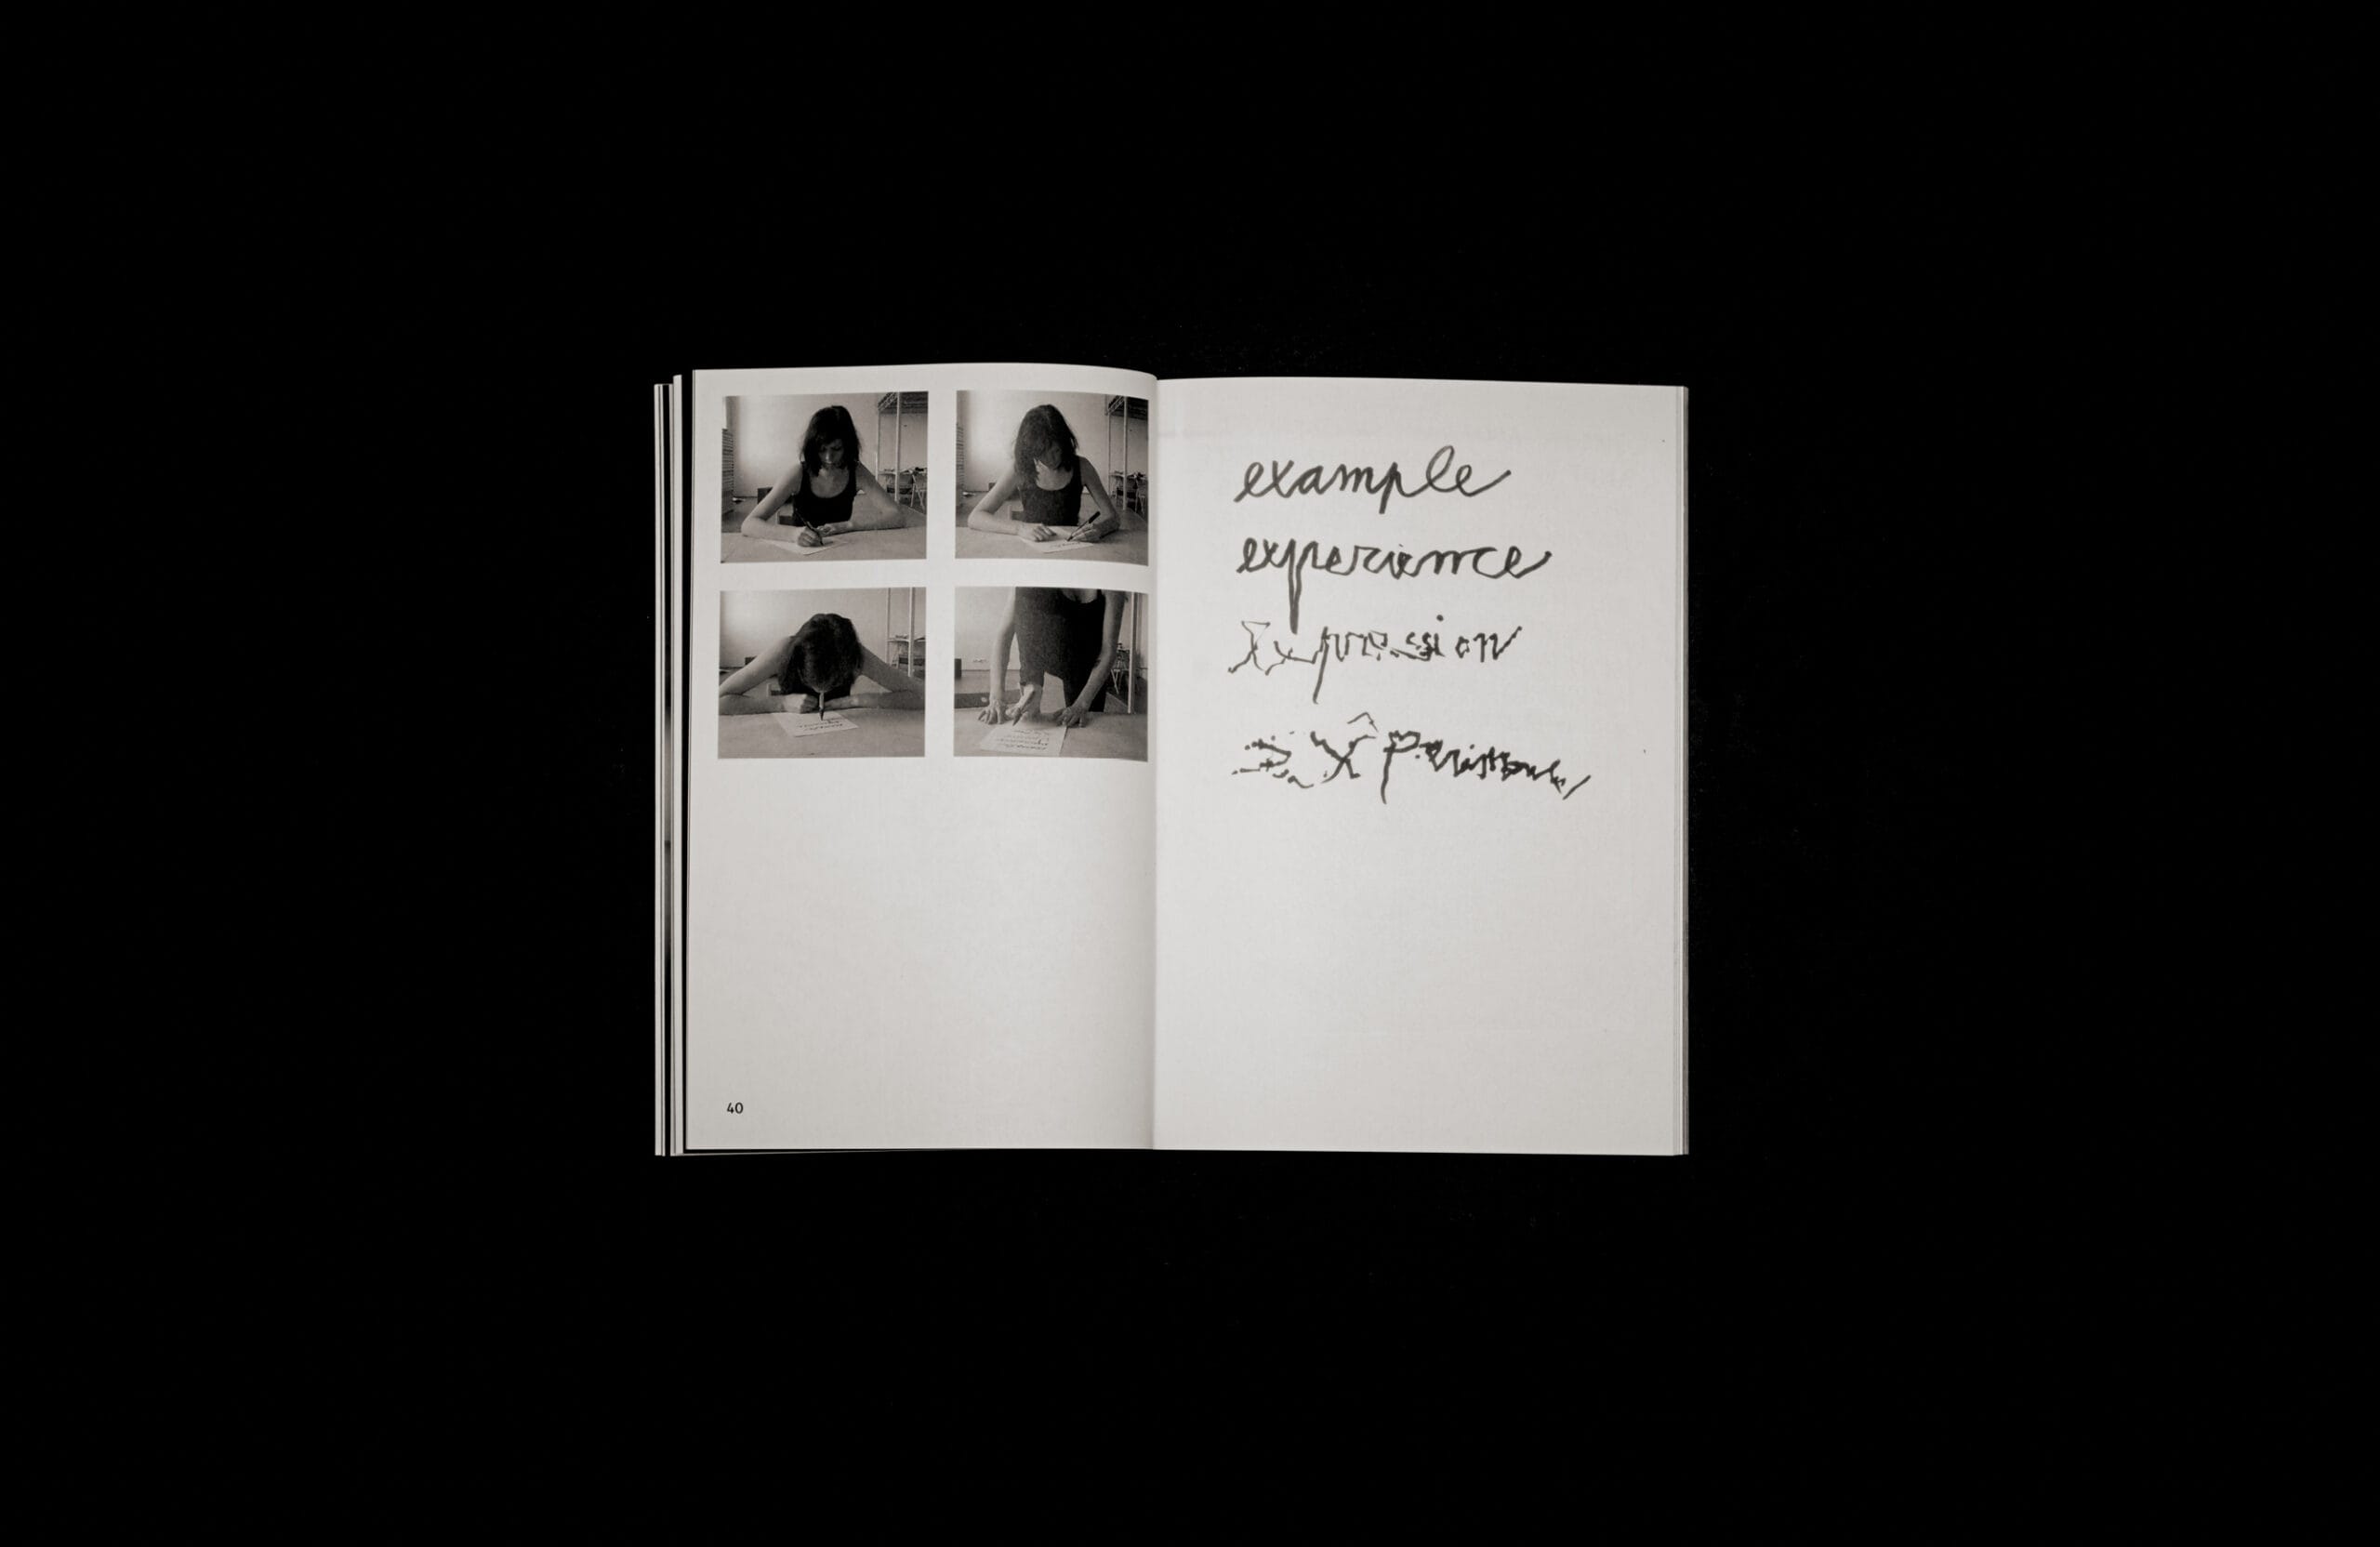 example
experience
Expression
40